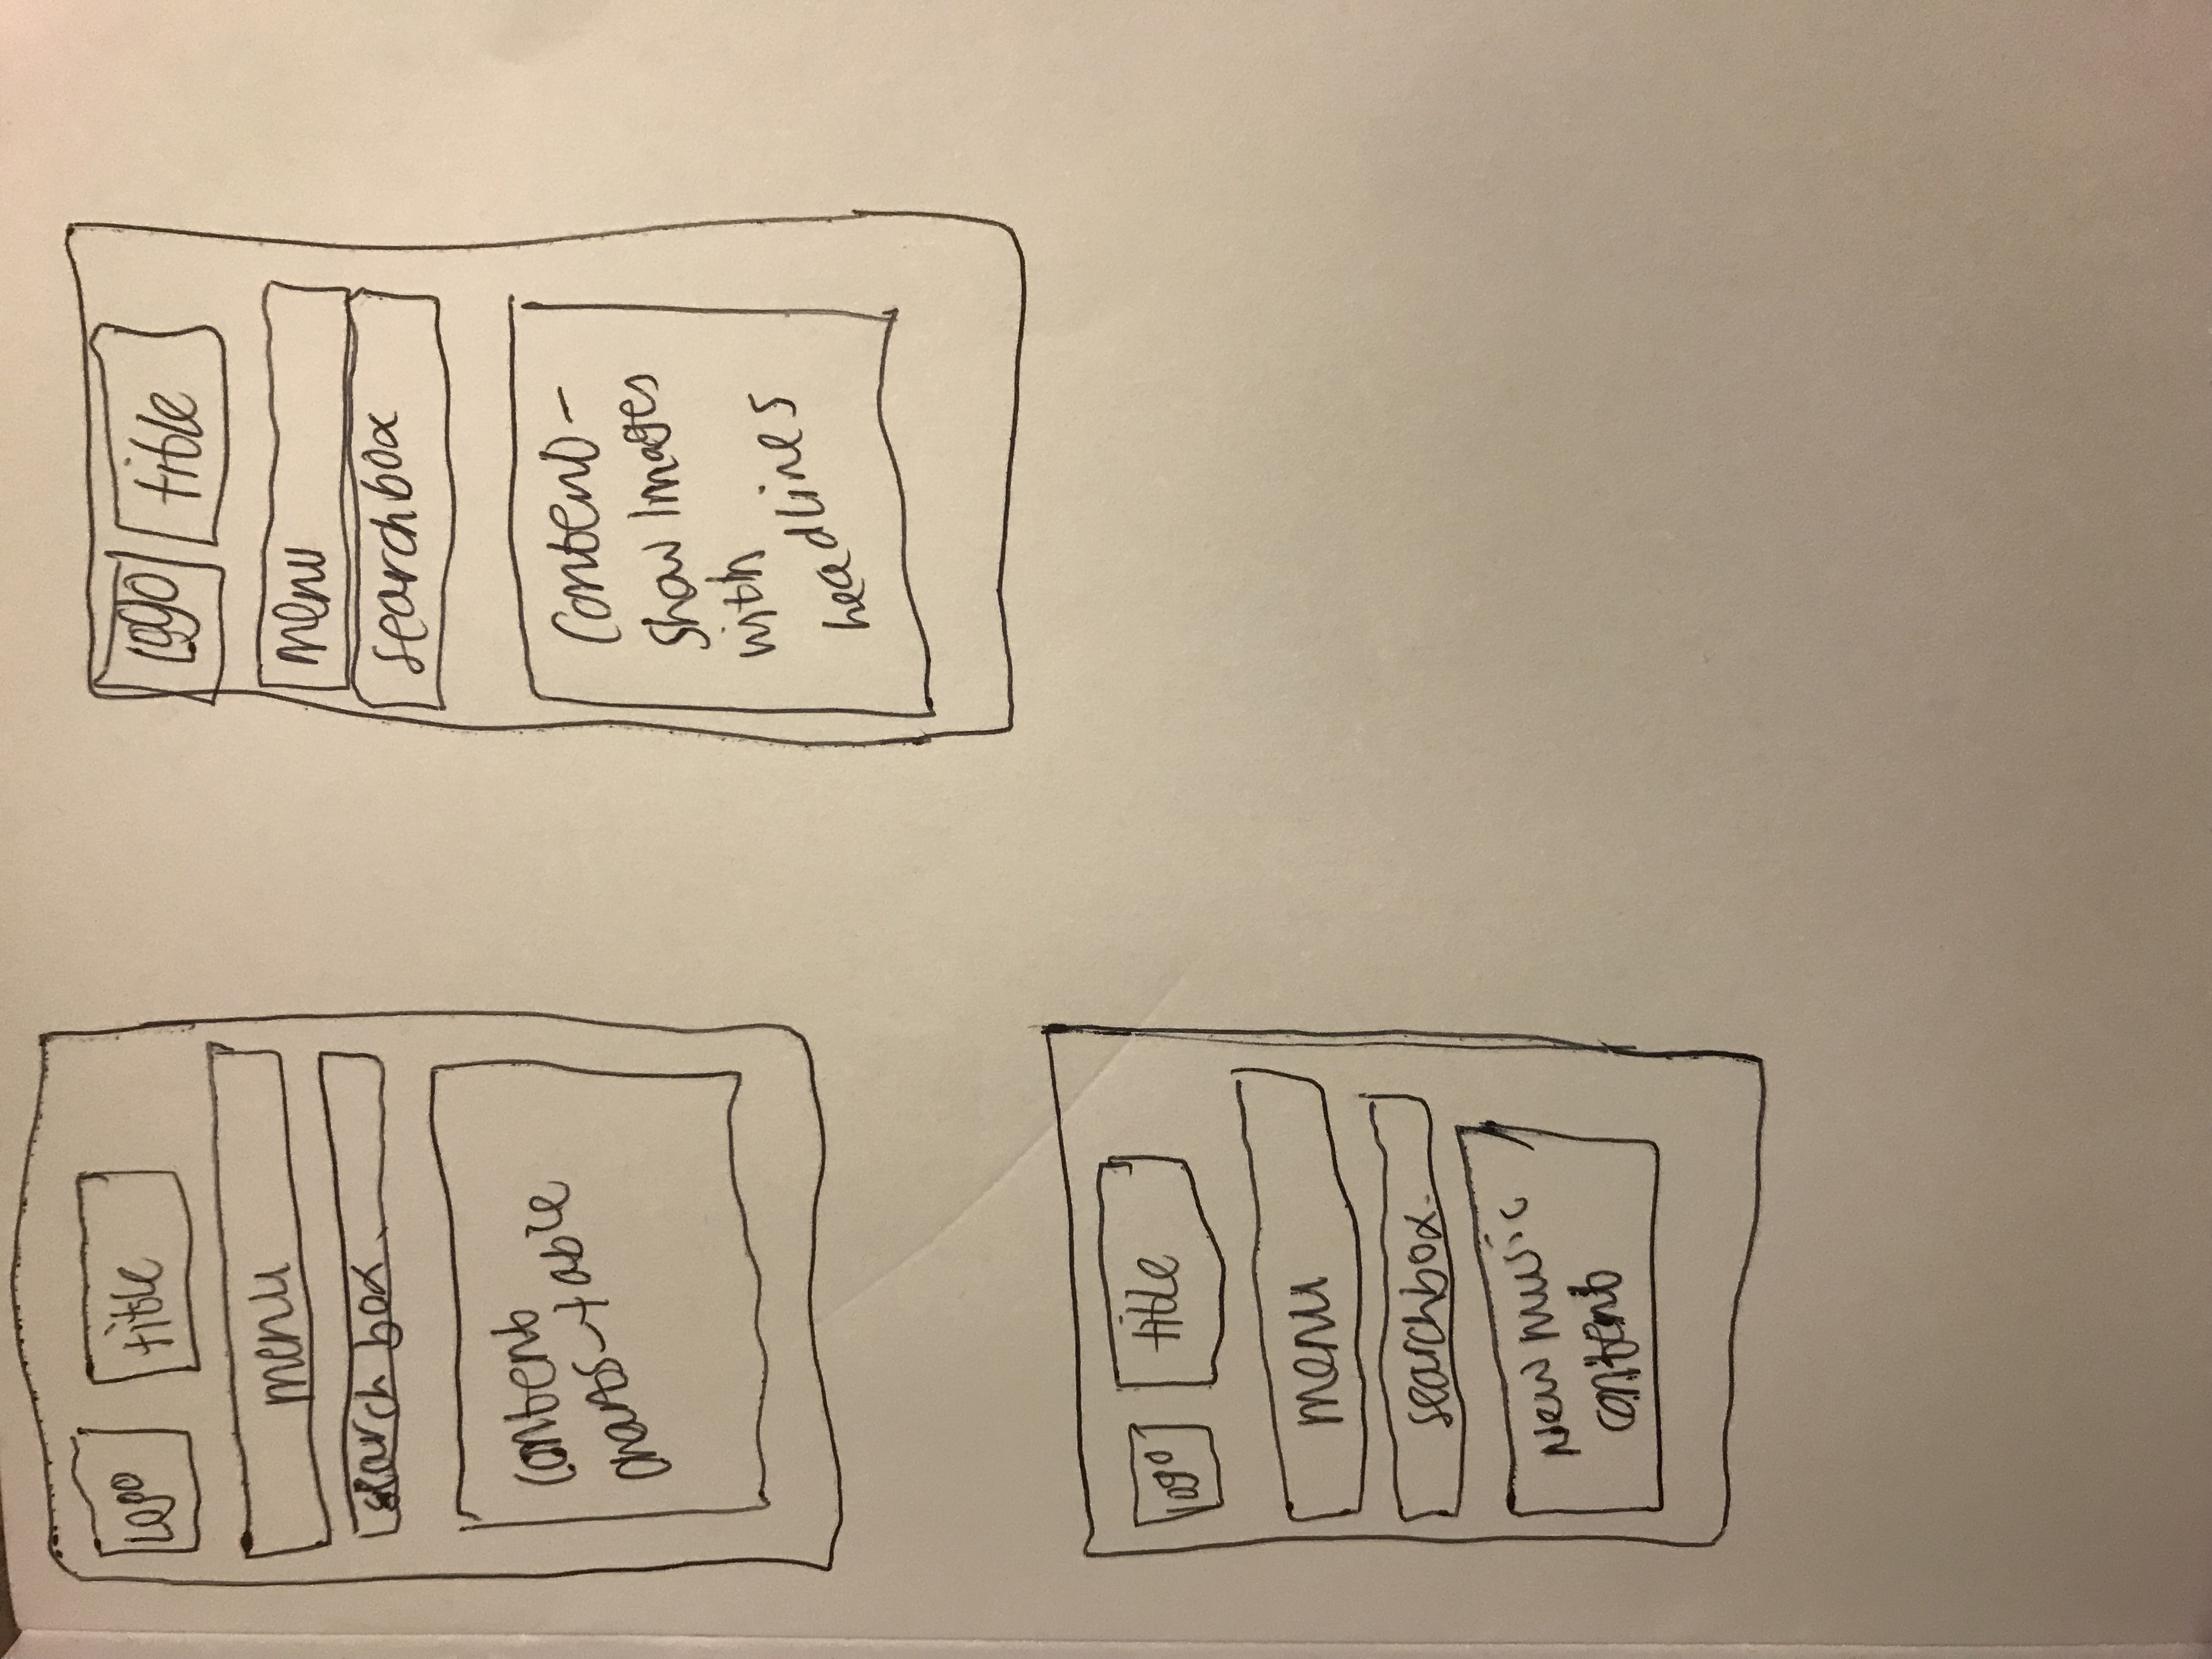 logo
title
menu
search box
content
charts-table
logo
title
menu
searchbox
content-
show images
with
headlines
logo
title
menu
searchbox
New music
content